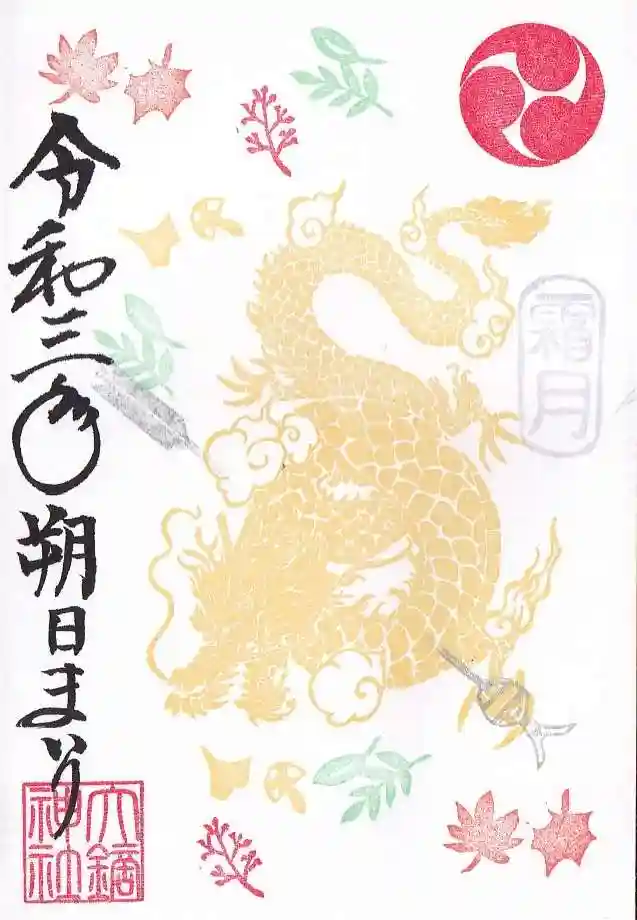 霜月
令和三年 朔日まいり
大鏑
神社